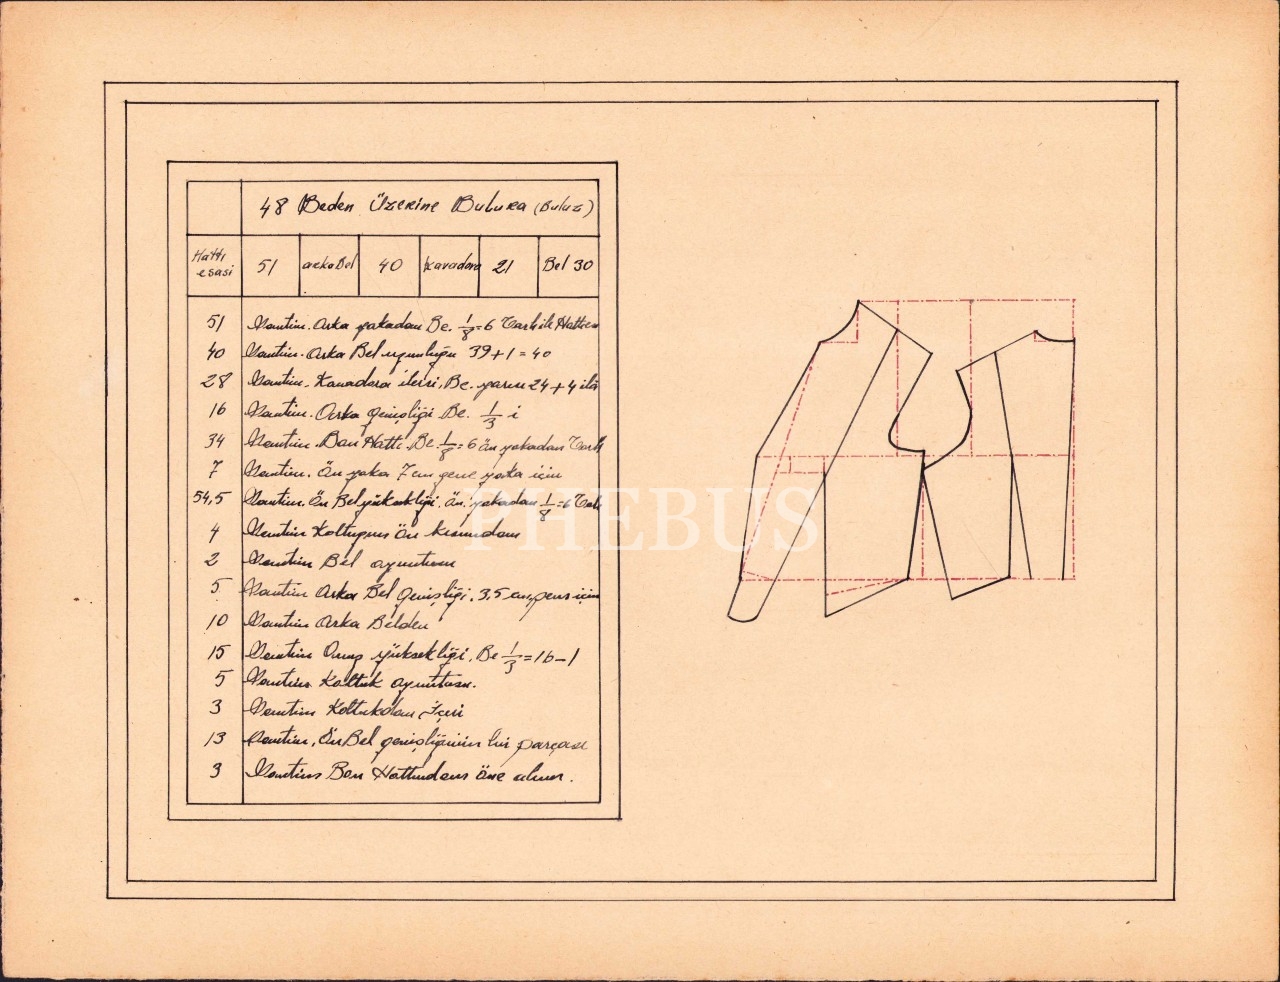 48 Beden Üzerine Buluza (Buluz)
Hattı esasi 51 arka Bel 40 kavadora 21 Bel 30
51 Santim. Arka yakadan Be. 1/8=6 Tarh ile Hattı
40 Santim. Arka Bel uzunluğu 39+1=40
28 Santim. Kavadora ilerisi, Be. yarısı 24+4
16 Santim. Arka genişliği Be. 1/3 i
34 Santim. Ban Hattı. Be. 1/8=6 Ön yakadan Tarh
7 Santim. Ön yaka 7 cm gene yaka için
54,5 Santim. Ön Bel yüksekliği. Ön. yakadan 1/8=6 Tarh
4 Santim Ön kısmından
2 Santim Bel oyuntusu
5 Santim Arka Bel genişliği. 3,5 cm. pens için
10 Santim Arka Belden
15 Santim Omuz yüksekliği. Be 1/3=16-1
5 Santim Koltuk oyuntusu.
3 Santim Koltukdan İçeri
13 Santim. Ön Bel genişliğinin bir parçası
3 Santim Ben Hattından öne alınır.
PHEBUS